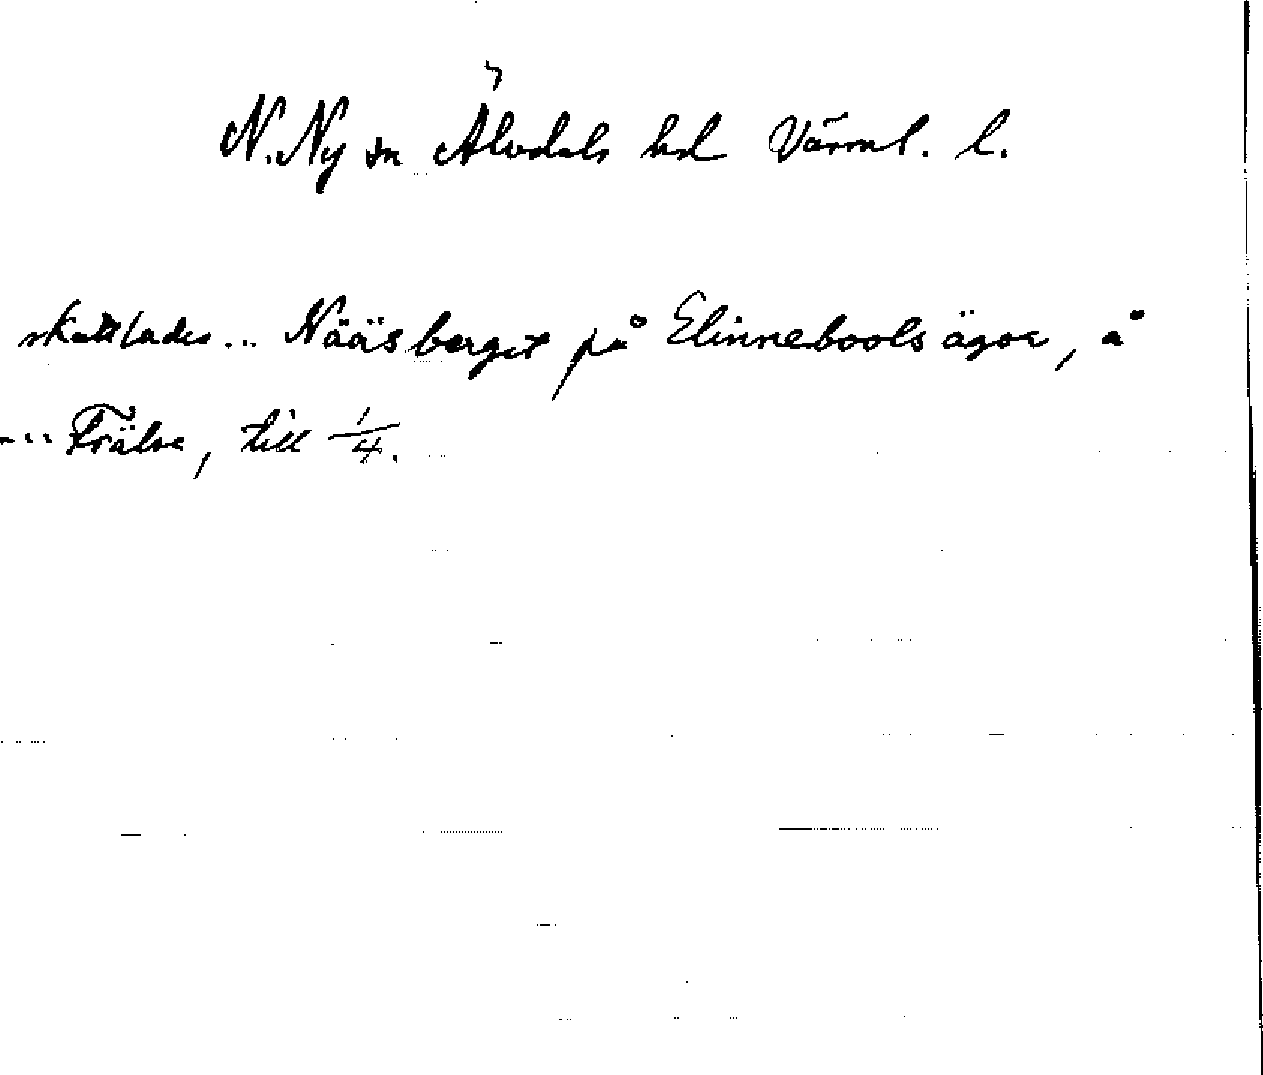 N. Ny sn Älvdals hd Värml. l.
skattlades... Nääsberget på Elinnebools ägor, å
... Frälse, till 1/4.